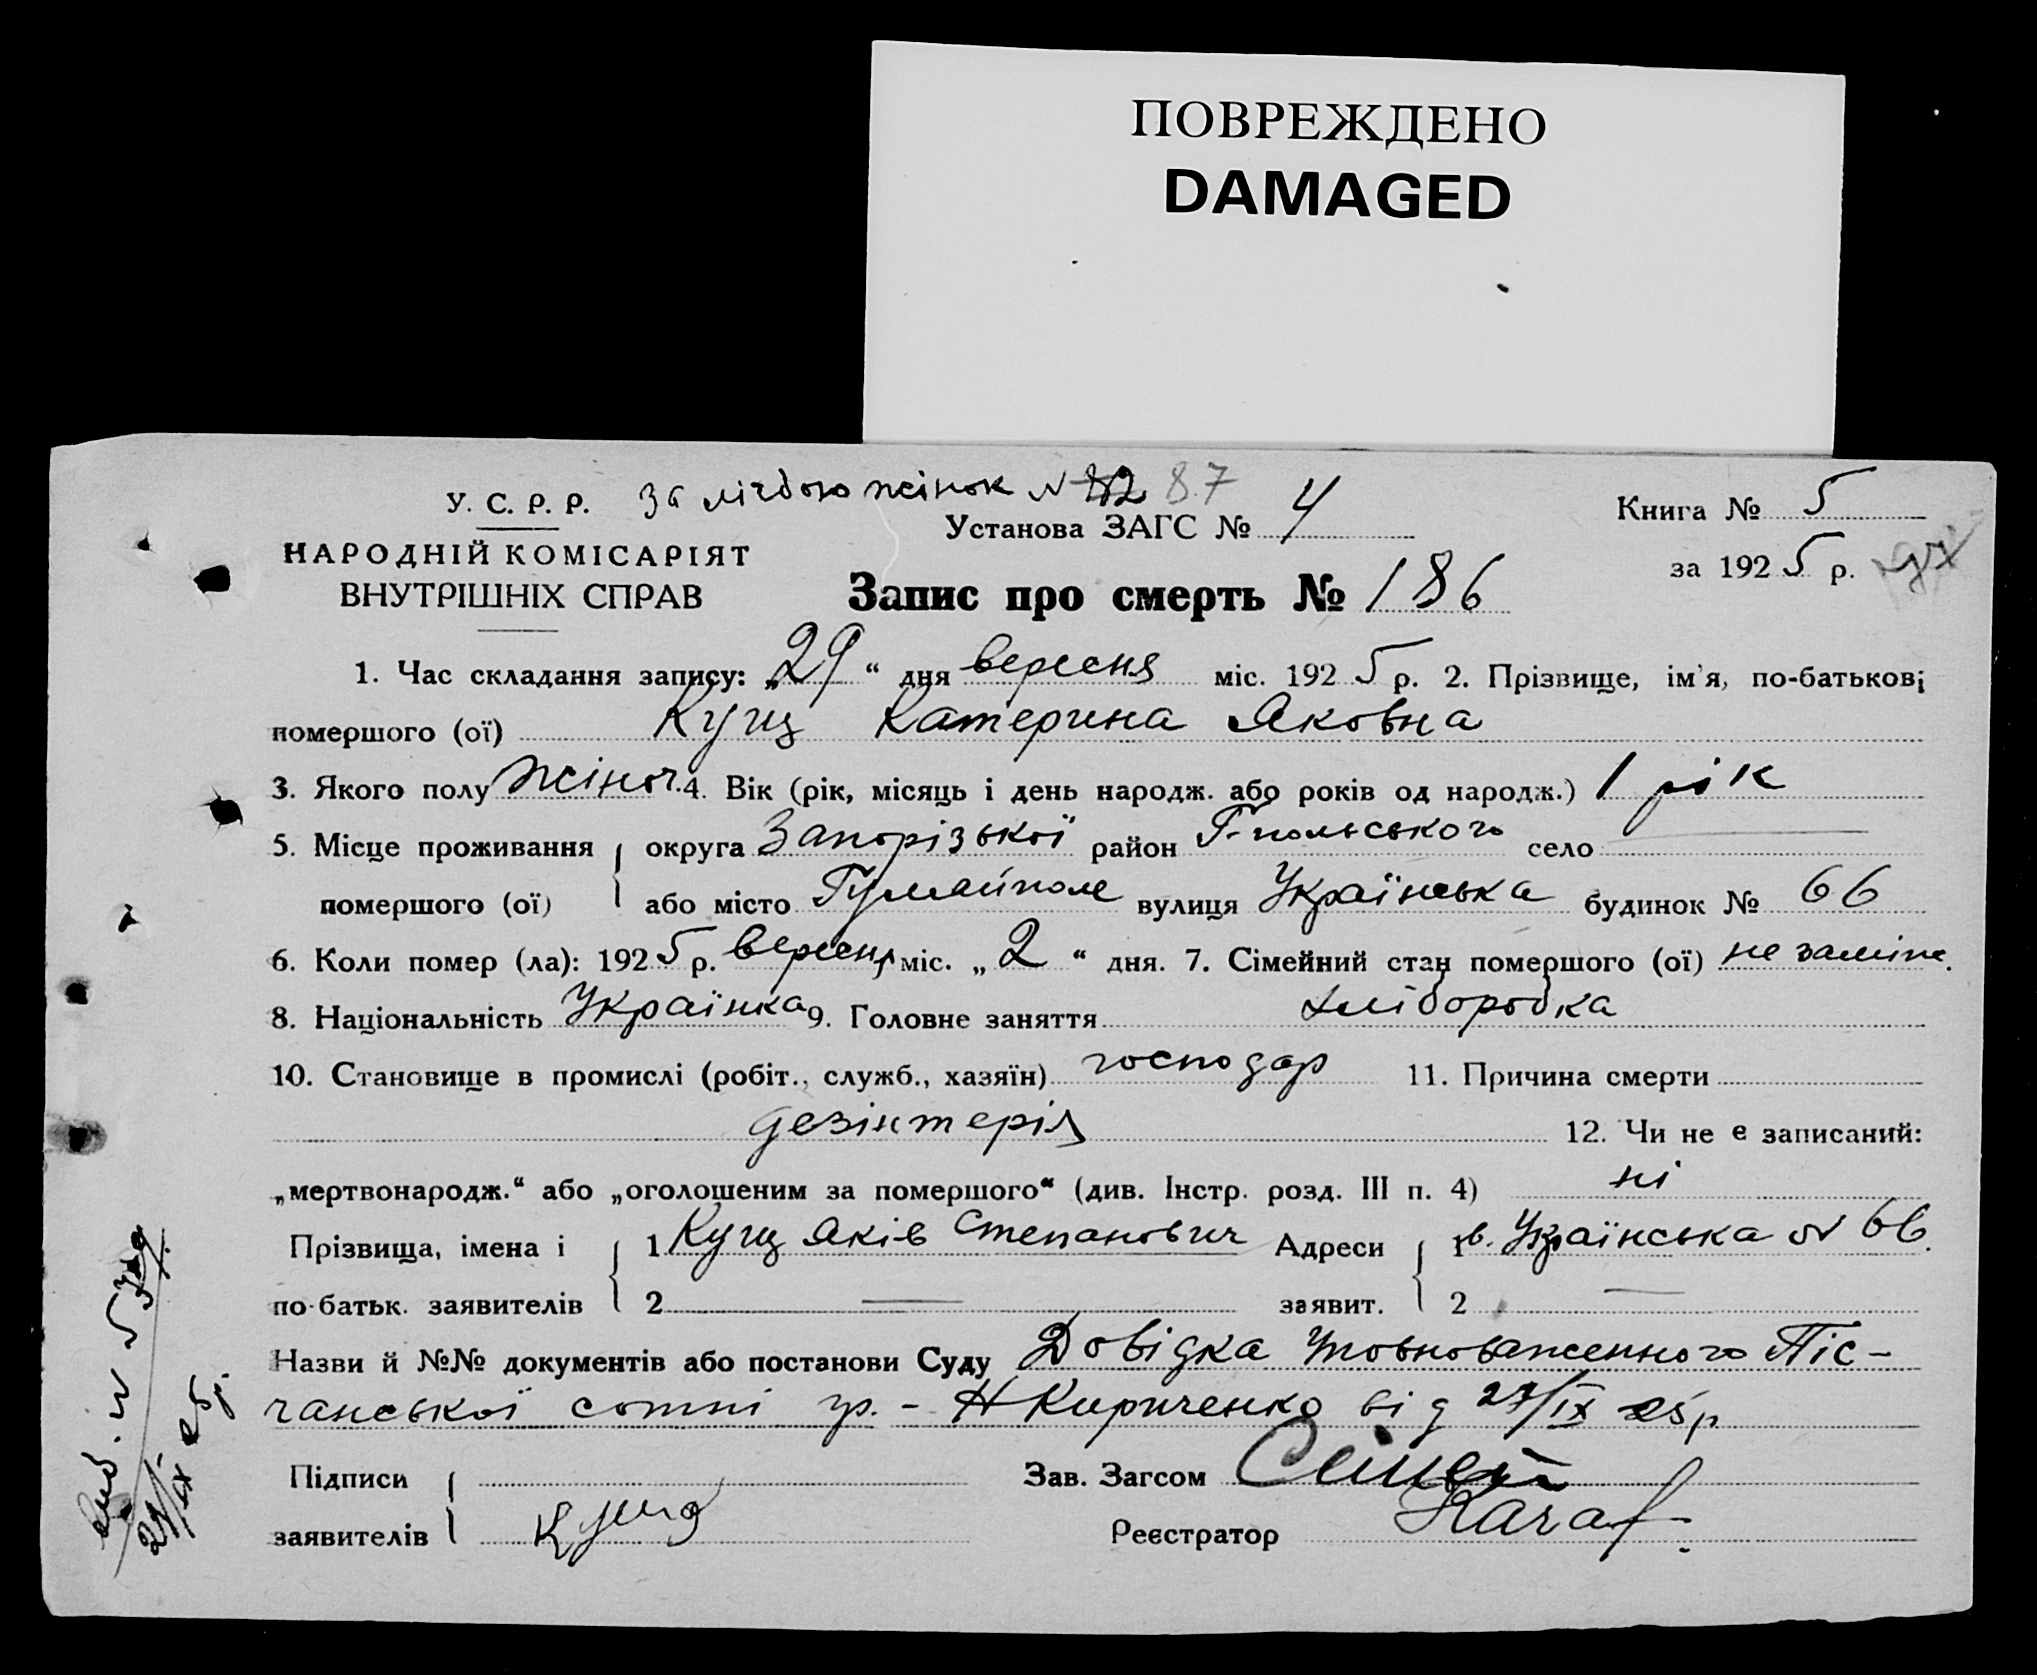 ПОВРЕЖДЕНО
DAMAGED
У. С. Р. Р. За лічбою жінок № 82 87
Установа ЗАГС № 4
Книга № 5
НАРОДНІЙ КОМІСАРІЯТ
ВНУТРІШНІХ СПРАВ
за 1925 р.
Запис про смерть № 186
1. Час складання запису: „29“ дня вересня міс. 1925 р. 2. Прізвище, ім'я, по-батькові
помершого (ої) Кущ Катерина Яковна
3. Якого полу жіноч. 4. Вік (рік, місяць і день народж. або років од народж.) 1 рік
5. Місце проживання округа Запорізької район Г-польського село —
помершого (ої) або місто Гуляйполе вулиця Українська будинок № 66
6. Коли помер (ла): 1925 р. вересня міс. „2“ дня. 7. Сімейний стан помершого (ої) не заміж.
8. Національність Українка 9. Головне заняття хліборобка
10. Становище в промислі (робіт., служб., хазяїн) господар 11. Причина смерти
дезінтерія 12. Чи не є записаний:
„мертвонародж.“ або „оголошеним за помершого“ (див. Інстр. розд. III п. 4) ні
Прізвища, імена і 1 Кущ Яків Степанович Адреси 1 в. Українська № 66.
по-батьк. заявителів 2 — заявит. 2 —
Назви й №№ документів або постанови Суду Довідка уповноваженного Піс-
чанської сотні гр. - Н Кириченко від 27/IX 25 р
Підписи Зав. Загсом
заявителів Кущ Реєстратор
29/IX 25 р.